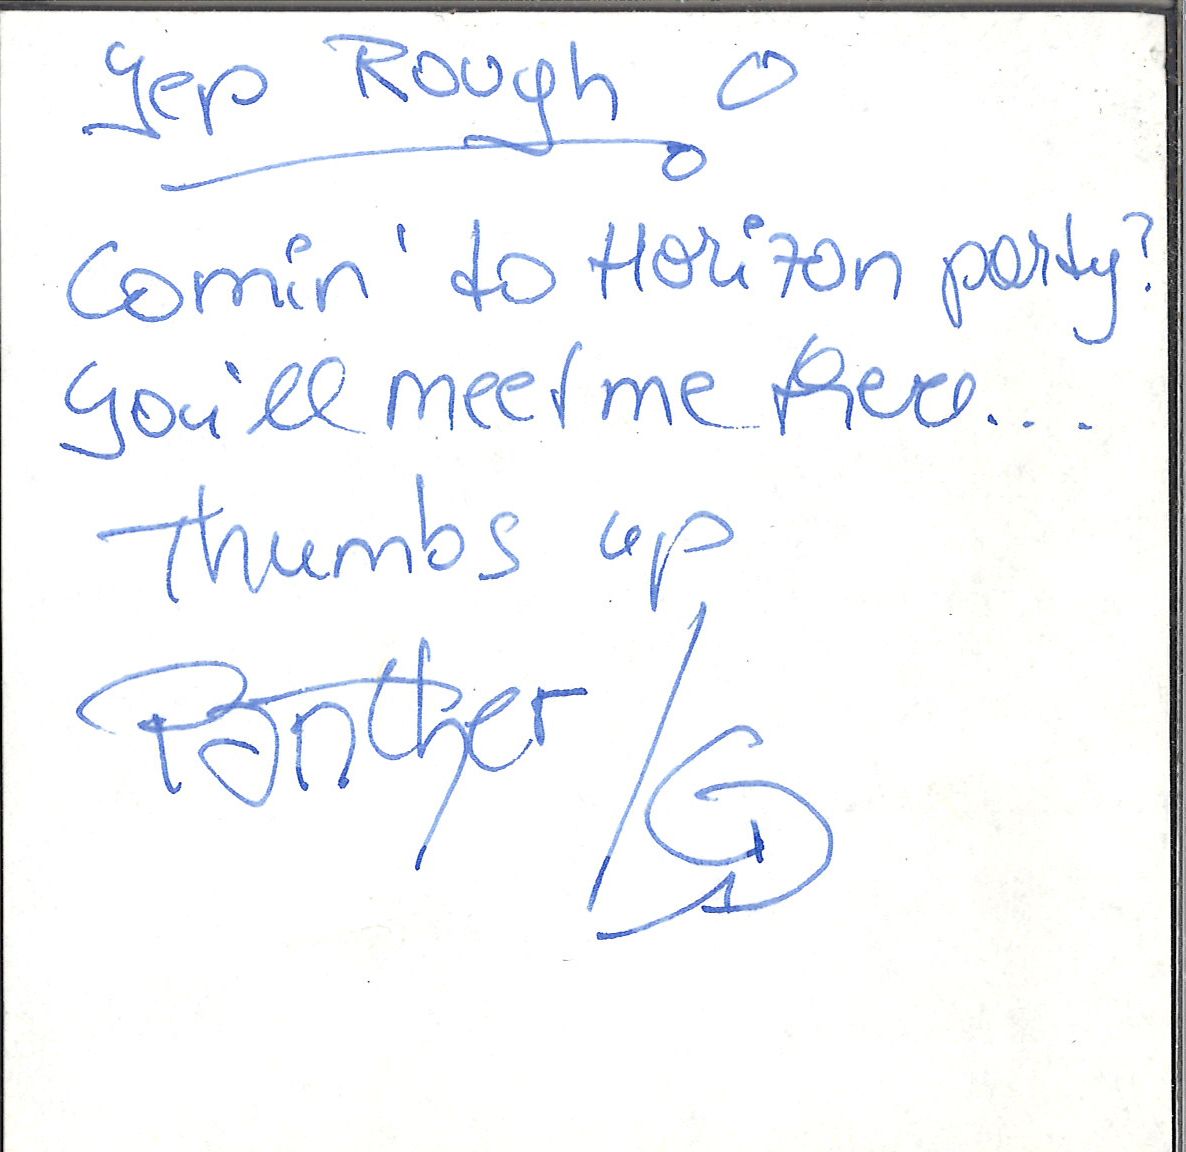 Yep Rough
Comin' to Horizon party?
You'll meet me there...
Thumbs up
Panther/GD